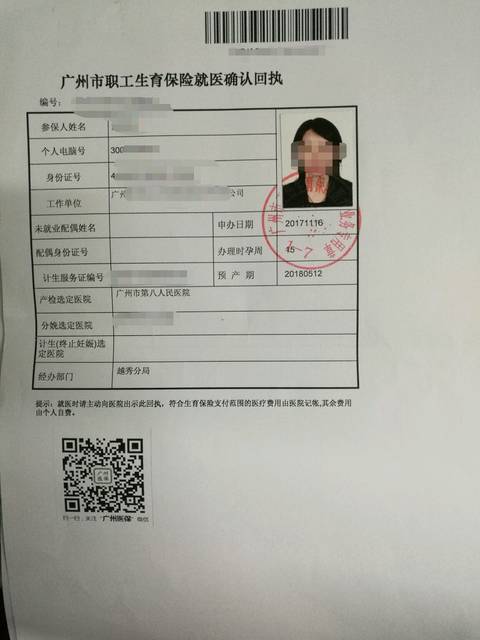 广州市职工生育保险就医确认回执
编号:
参保人姓名
个人电脑号 300
身份证号 4
工作单位 广州 公司
未就业配偶姓名 申办日期 20171116
配偶身份证号 办理时孕周 15
计生服务证编号 预产期 20180512
产检选定医院 广州市第八人民医院
分娩选定医院
计生(终止妊娠)选
定医院
经办部门 越秀分局
提示:就医时请主动向医院出示此回执,符合生育保险支付范围的医疗费用由医院记帐,其余费用
由个人自费。
广州
医保
扫一扫,关注"广州医保"微信